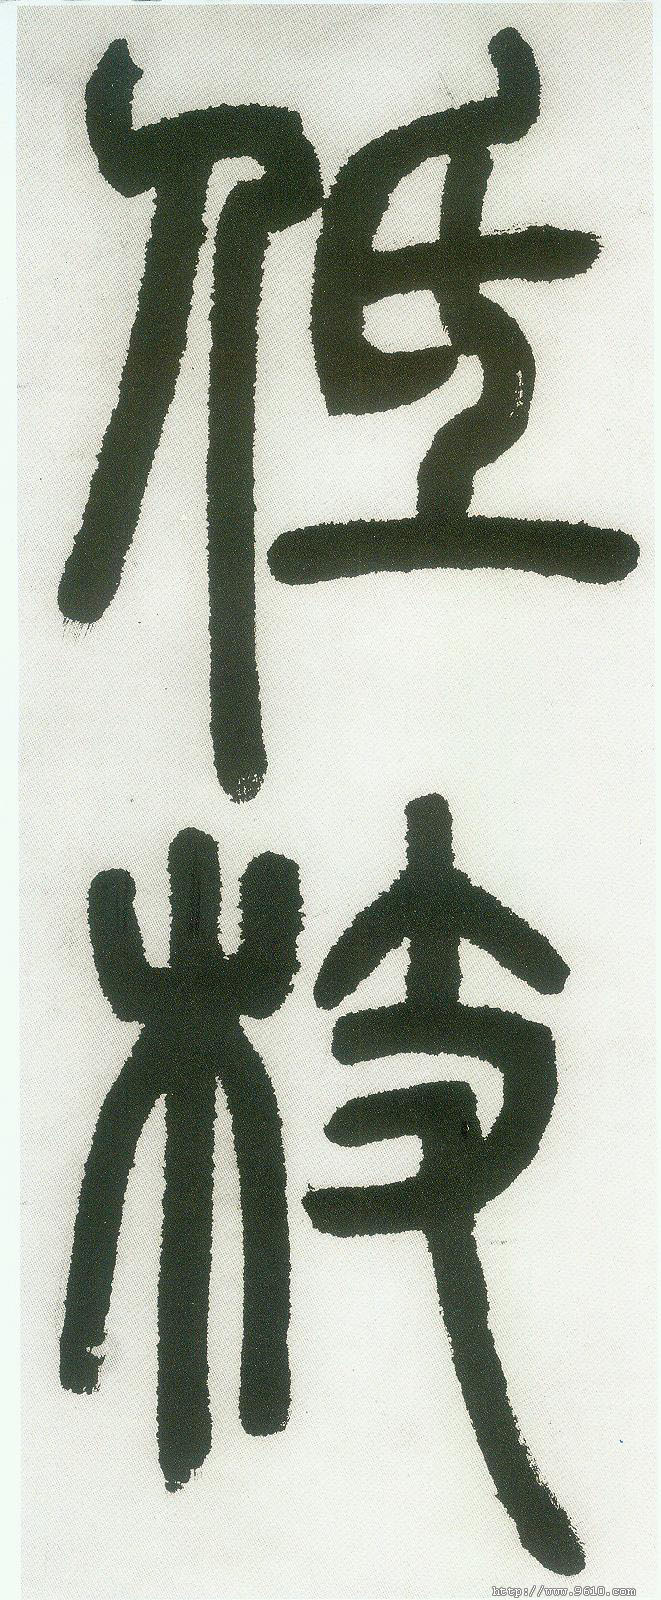 低枝
http://www.9610.com